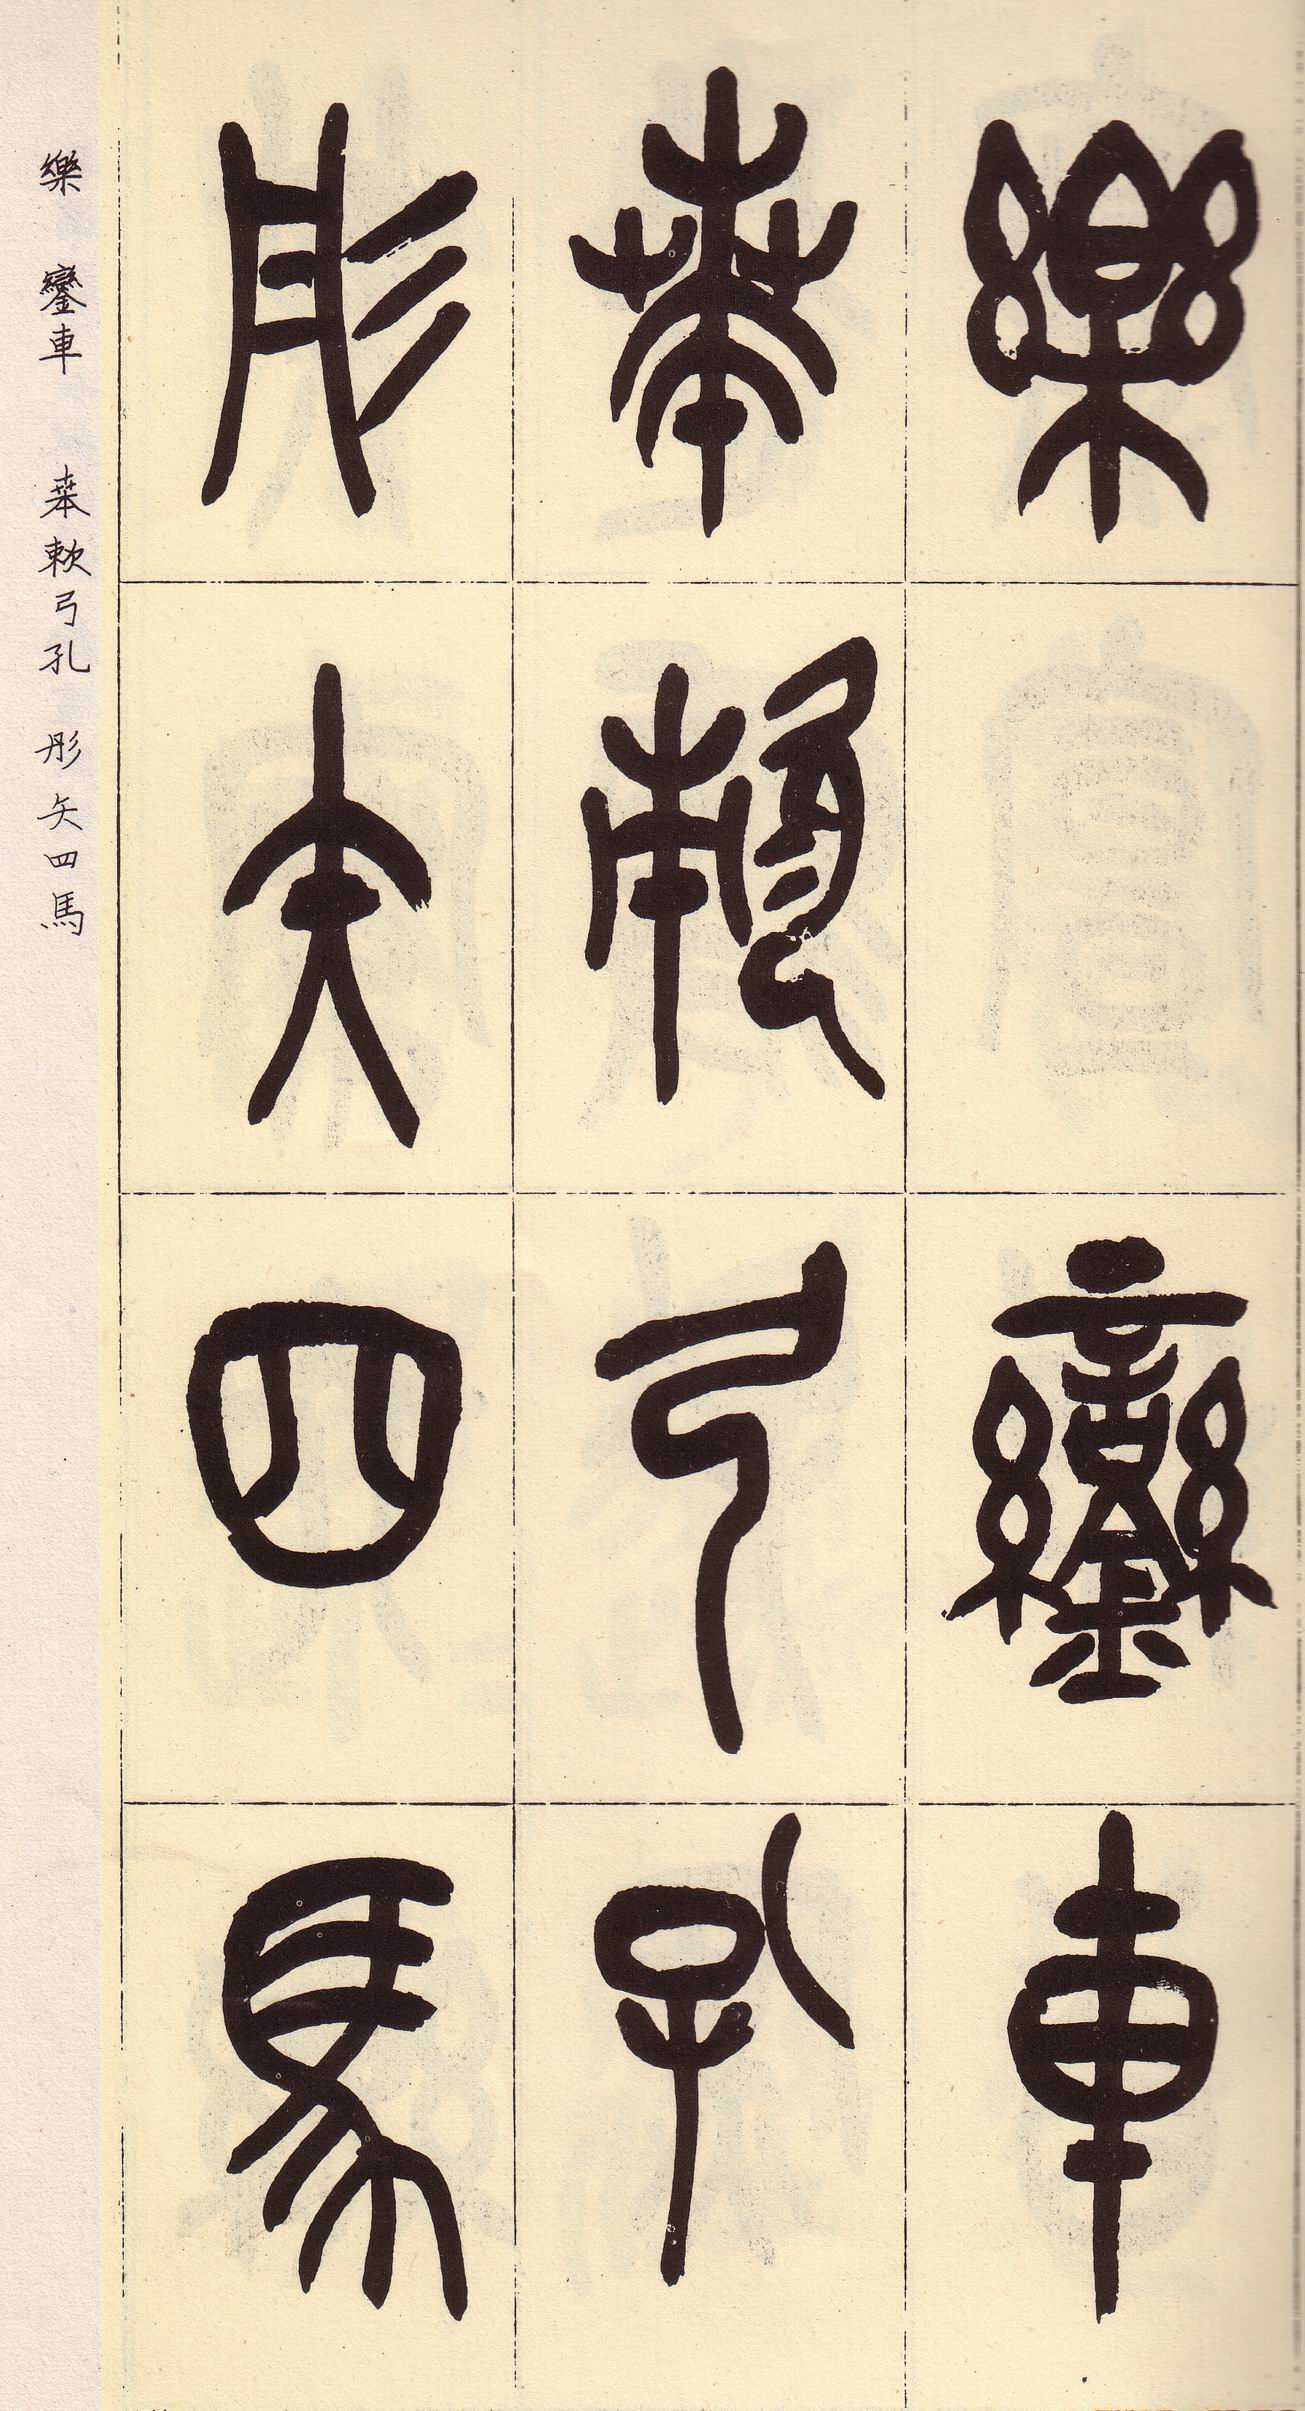 樂 鑾車
欶弓孔
彤矢四馬
樂 鑾車 欶弓孔 彤矢四馬